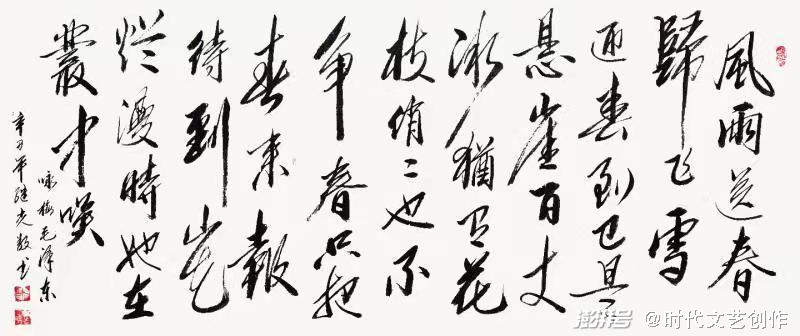 風雨送春
歸飞雪
迎春到已是
悬崖百丈
冰猶有花
枝俏〻也不
争春只把
春来報
待到山花
烂漫時她在
叢中笑
咏梅毛泽东
辛丑年继书
澎湃号 @时代文艺创作